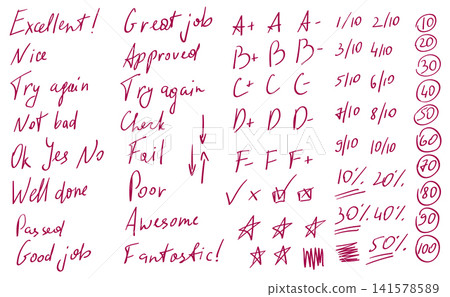 Excellent! Great job A+ A A- 1/10 2/10 10
Nice Approved B+ B B- 3/10 4/10 20
30
Try again Try again C+ C C- 5/10 6/10 40
Not bad Check D+ D D- 7/10 8/10 50
Ok Yes No Fail F F F+ 9/10 10/10 60
70
Well done Poor 10% 20% 80
Passed Awesome 30% 40% 90
Good job Fantastic! 50% 100
stock.adobe.com
141578589